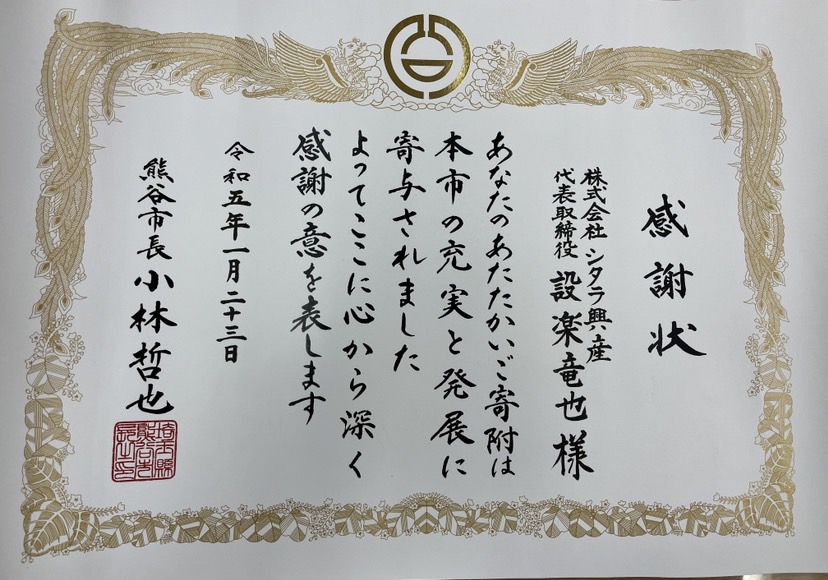 感謝状
株式会社シタラ興産
代表取締役 設楽竜也様
あなたのあたたかいご寄附は
本市の充実と発展に
寄与されました
よってここに心から深く
感謝の意を表します
令和五年一月二十三日
熊谷市長 小林哲也